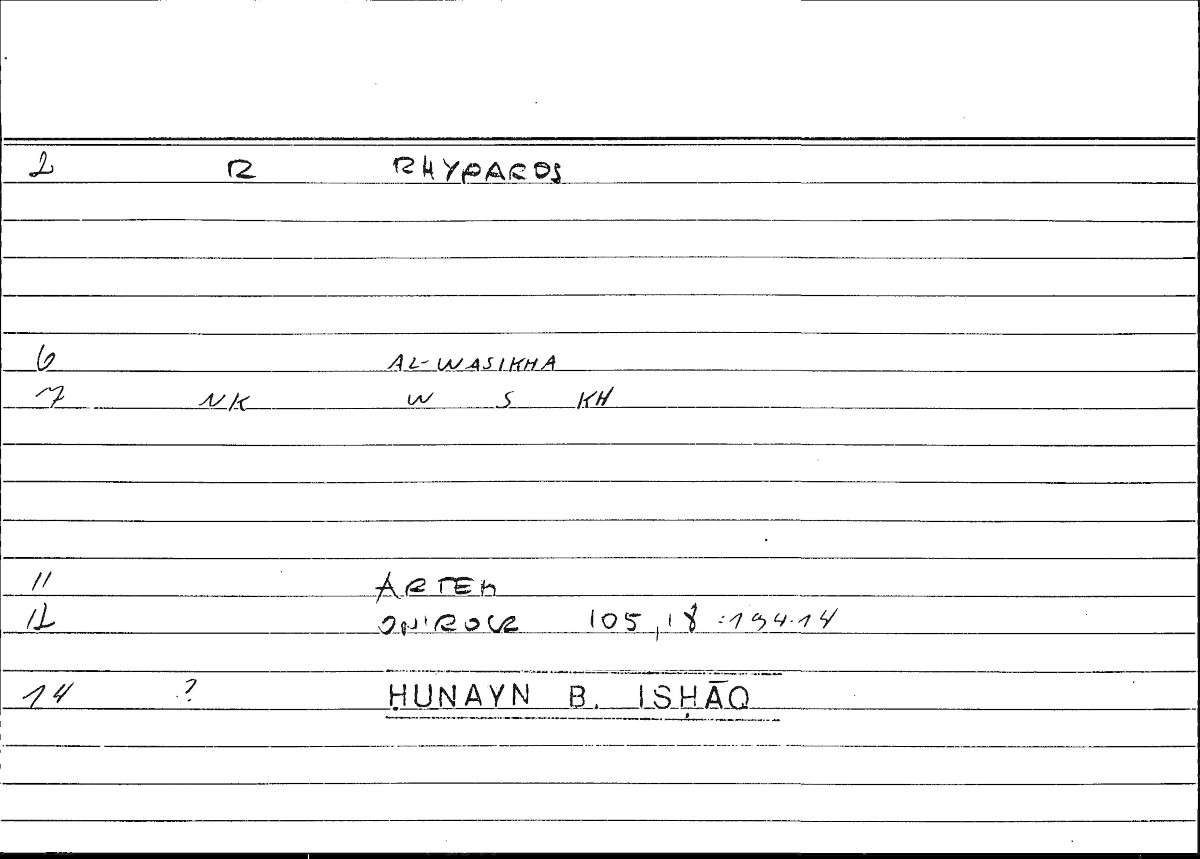 2 R RHYPAROS
6 AL-WASIKHA
7 NK W S KH
11 ARTEM
12 ONIROCR 105,18 :194.14
14 ? ḤUNAYN B. ISḤĀQ